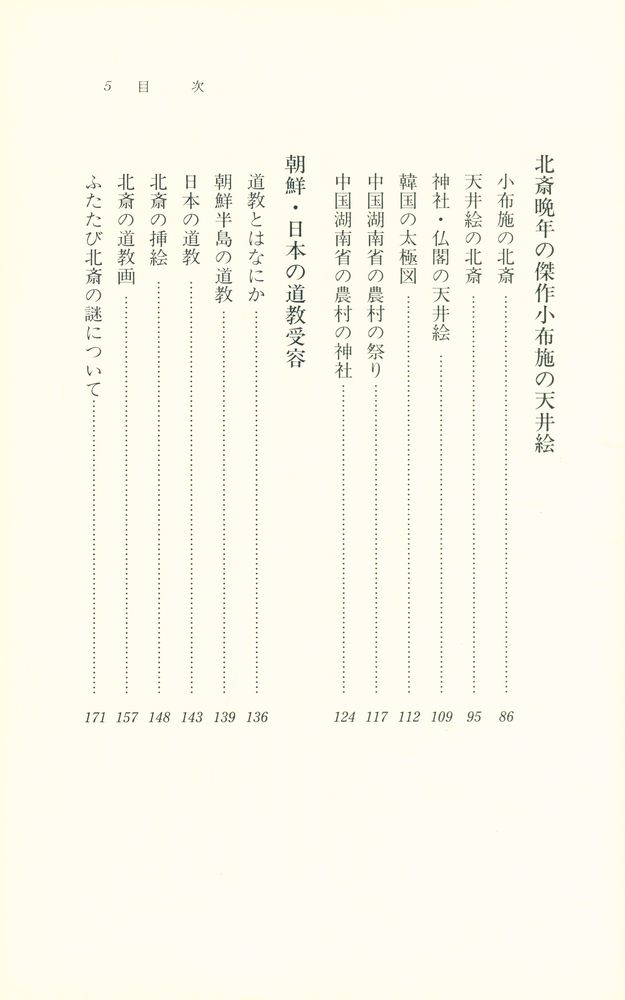 5 目 次
北斎晩年の傑作小布施の天井絵
小布施の北斎……86
天井絵の北斎……95
神社・仏閣の天井絵……109
韓国の太極図……112
中国湖南省の農村の祭り……117
中国湖南省の農村の神社……124
朝鮮・日本の道教受容
道教とはなにか……136
朝鮮半島の道教……139
日本の道教……143
北斎の挿絵……148
北斎の道教画……157
ふたたび北斎の謎について……171